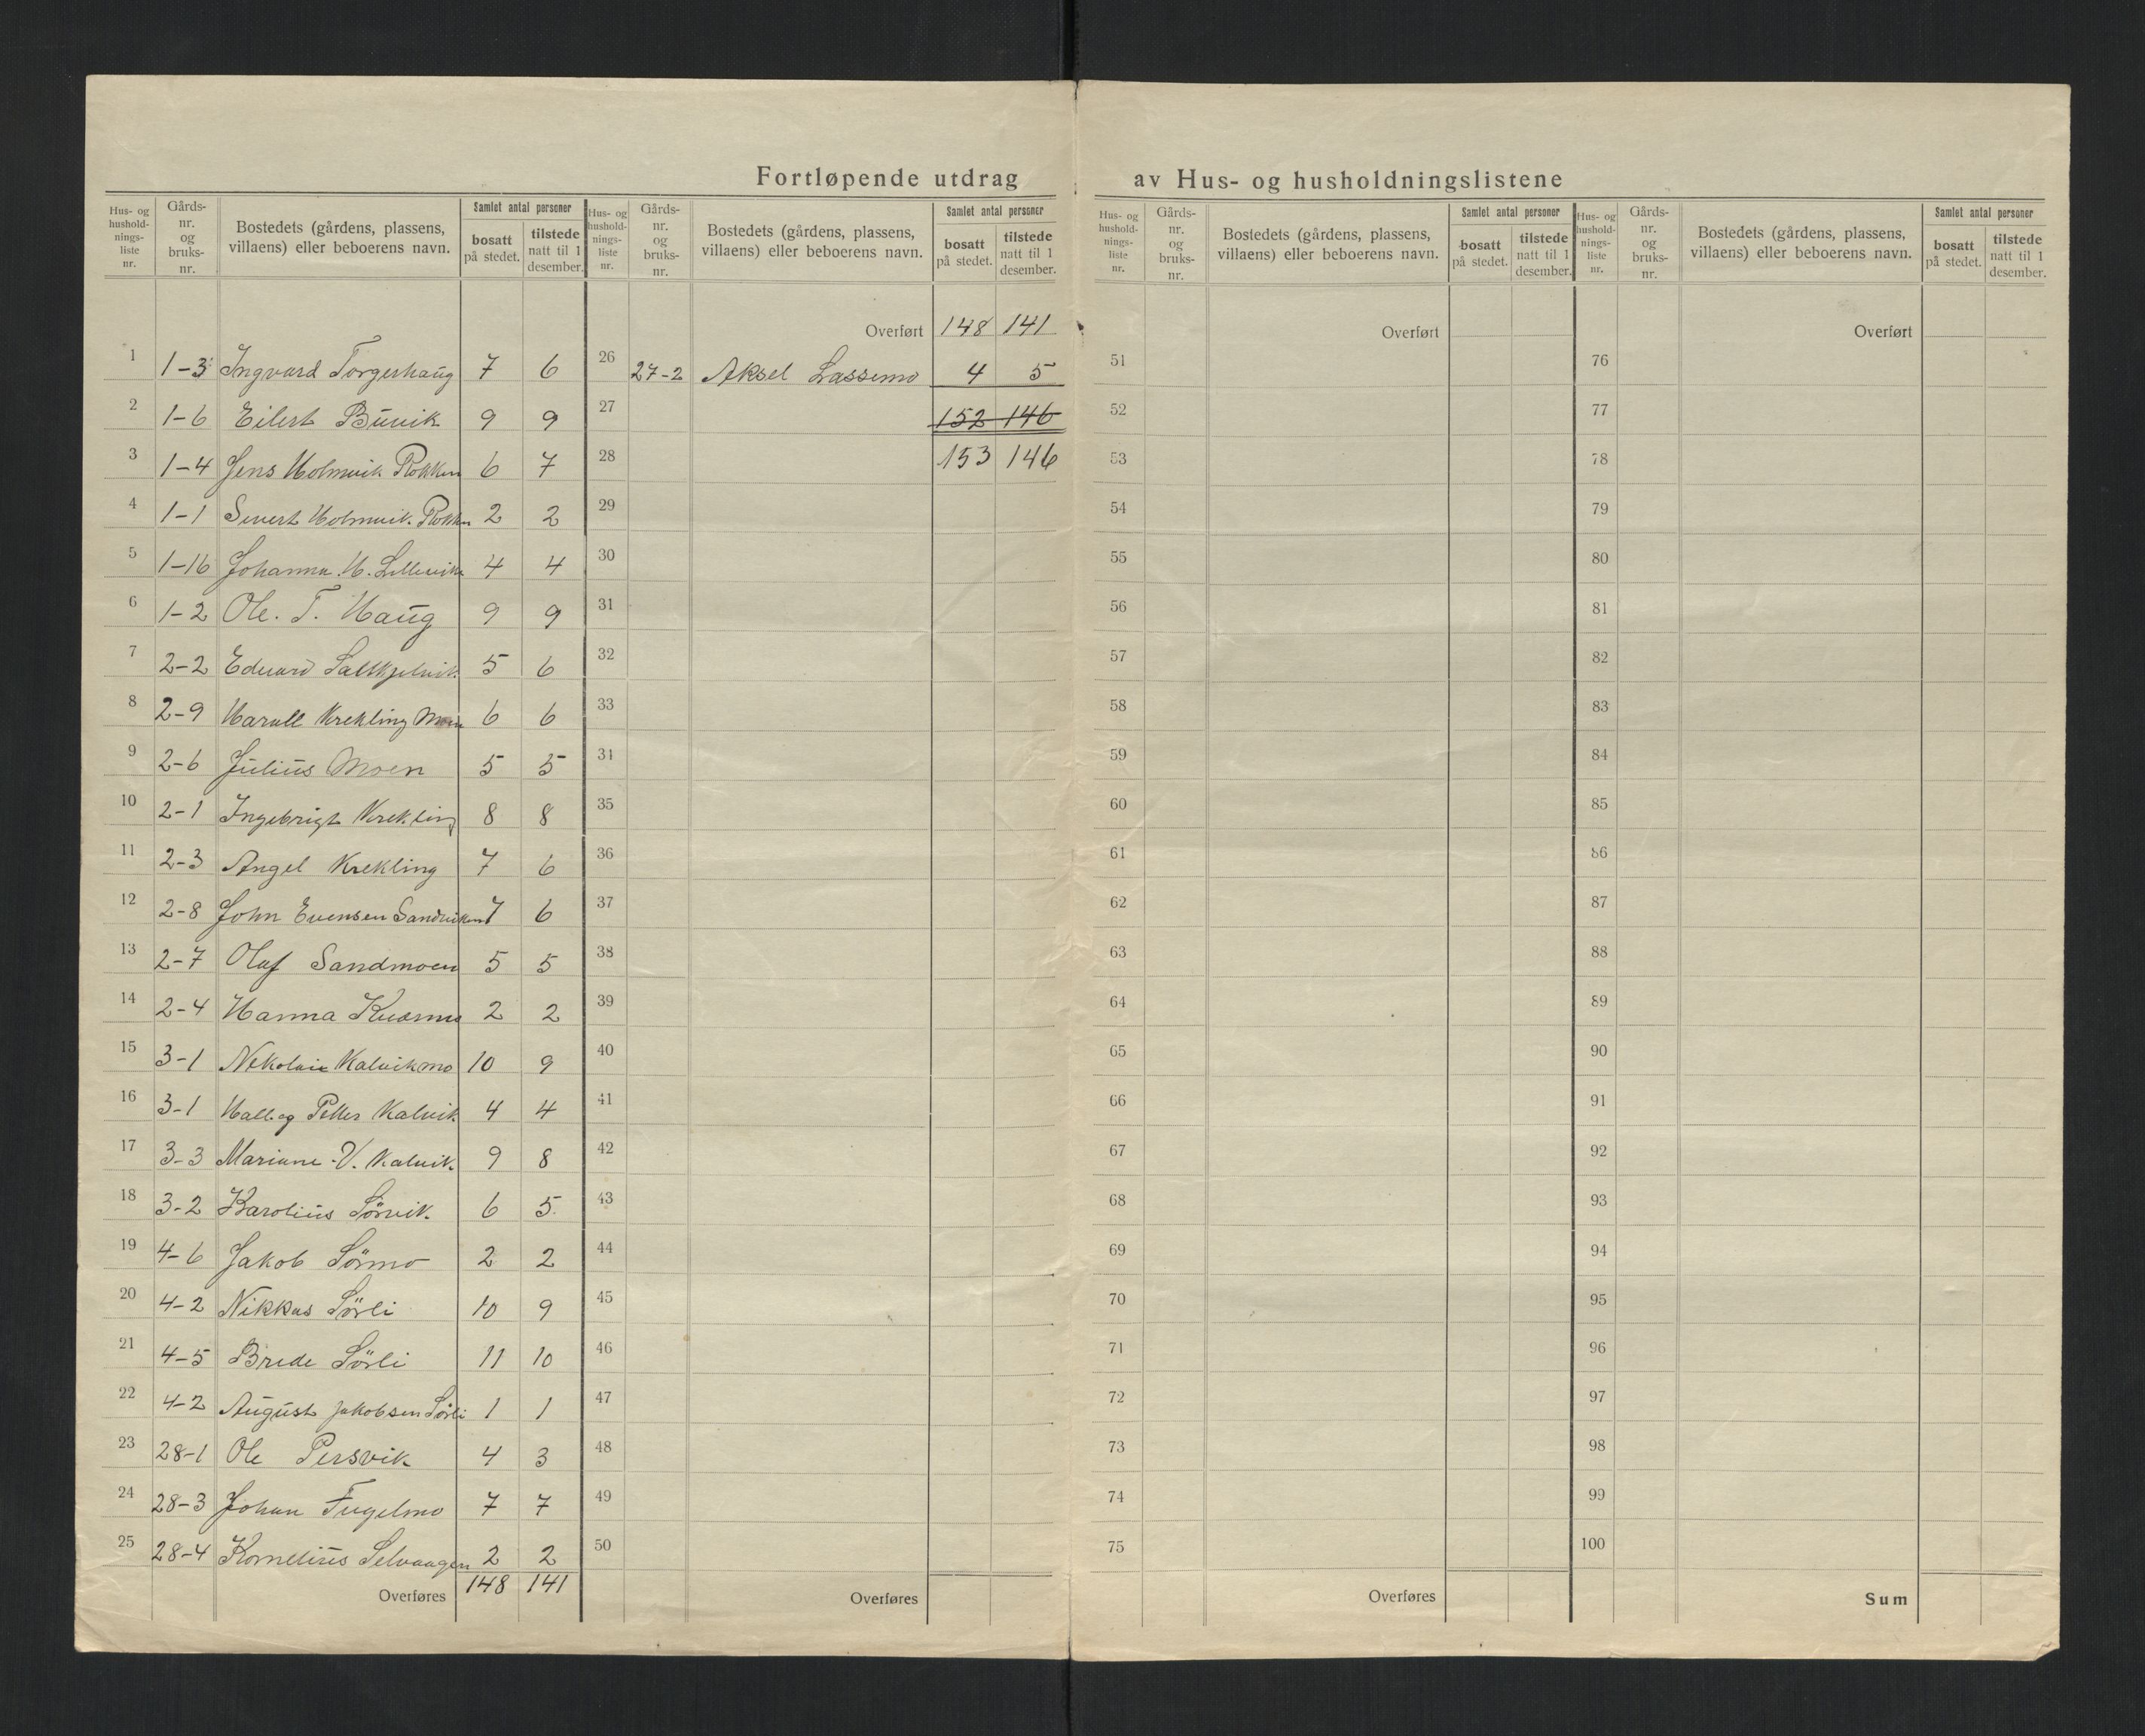 Fortløpende utdrag av Hus- og husholdningslistene
Hus- og hushold-nings-liste nr. Gårds-nr. og bruks-nr. Bostedets (gårdens, plassens, villaens) eller beboerens navn. Samlet antal personer bosatt på stedet. tilstede natt til 1 desember.
1 1-3 Ingvard Torgerhaug 7 6
2 1-6 Eilert Buvik 9 9
3 1-4 Jens Holmvik Rokken 6 7
4 1-1 Sivert Holmvik Rokken 2 2
5 1-16 Johanna H. Lillevik 4 4
6 1-2 Ole. T. Haug 9 9
7 2-2 Edvard Saltkjelvik 5 6
8 2-9 Harall Krekling Moen 6 6
9 2-6 Julius Moen 5 5
10 2-1 Ingebrigt Krekling 8 8
11 2-3 Angel Krekling 7 6
12 2-8 John Evensen Sandviken 7 6
13 2-7 Olaf Sandmoen 5 5
14 2-4 Hanna Kvanmo 2 2
15 3-1 Nekolai Kalvikmo 10 9
16 3-1 Petter Kalvik 4 4
17 3-3 Mariane V. Kalvik 9 8
18 3-2 Karolius Sörvik 6 5
19 4-6 Jakob Sörmo 2 2
20 4-2 Nikkas Sörli 10 9
21 4-5 Brede Sörli 11 10
22 4-2 August Jakobsen Sörli 1 1
23 28-1 Ole Persvik 4 3
24 28-3 Johan Fugelmo 7 7
25 28-4 Kornelius Selvaagen 2 2
Overføres 148 141
Hus- og hushold-nings-liste nr. Gårds-nr. og bruks-nr. Bostedets (gårdens, plassens, villaens) eller beboerens navn. Samlet antal personer bosatt på stedet. tilstede natt til 1 desember.
Overført 148 141
26 27-2 Aksel Lassemo 4 5
27 152 146
28 153 146
29
30
31
32
33
34
35
36
37
38
39
40
41
42
43
44
45
46
47
48
49
50
Overføres
Hus- og hushold-nings-liste nr. Gårds-nr. og bruks-nr. Bostedets (gårdens, plassens, villaens) eller beboerens navn. Samlet antal personer bosatt på stedet. tilstede natt til 1 desember.
Overført
51
52
53
54
55
56
57
58
59
60
61
62
63
64
65
66
67
68
69
70
71
72
73
74
75
Overføres
Hus- og hushold-nings-liste nr. Gårds-nr. og bruks-nr. Bostedets (gårdens, plassens, villaens) eller beboerens navn. Samlet antal personer bosatt på stedet. tilstede natt til 1 desember.
Overført
76
77
78
79
80
81
82
83
84
85
86
87
88
89
90
91
92
93
94
95
96
97
98
99
100
Sum